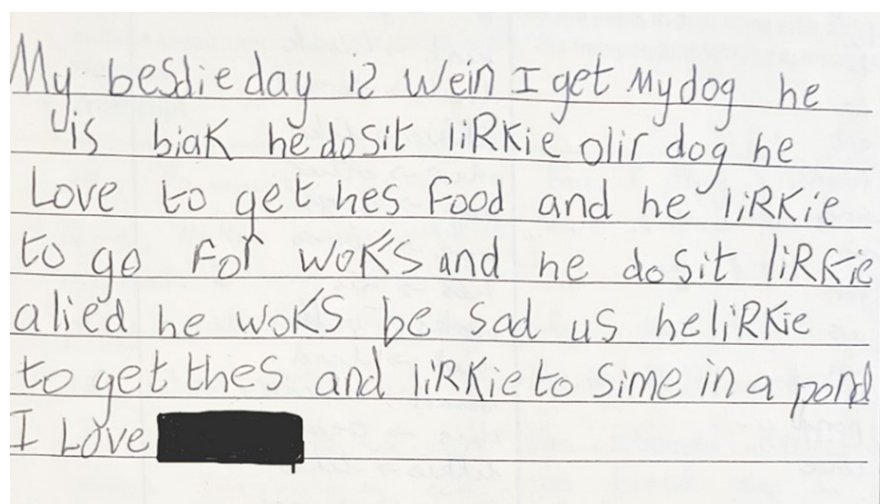 My besdie day is wein I get My dog he
is biak he dosit liRKie olir dog he
Love to get hes food and he liRKie
to go For woKS and he dosit liRKie
alied he woKS be sad us he liRKie
to get thes and liRKie to Sime in a pond
I Love